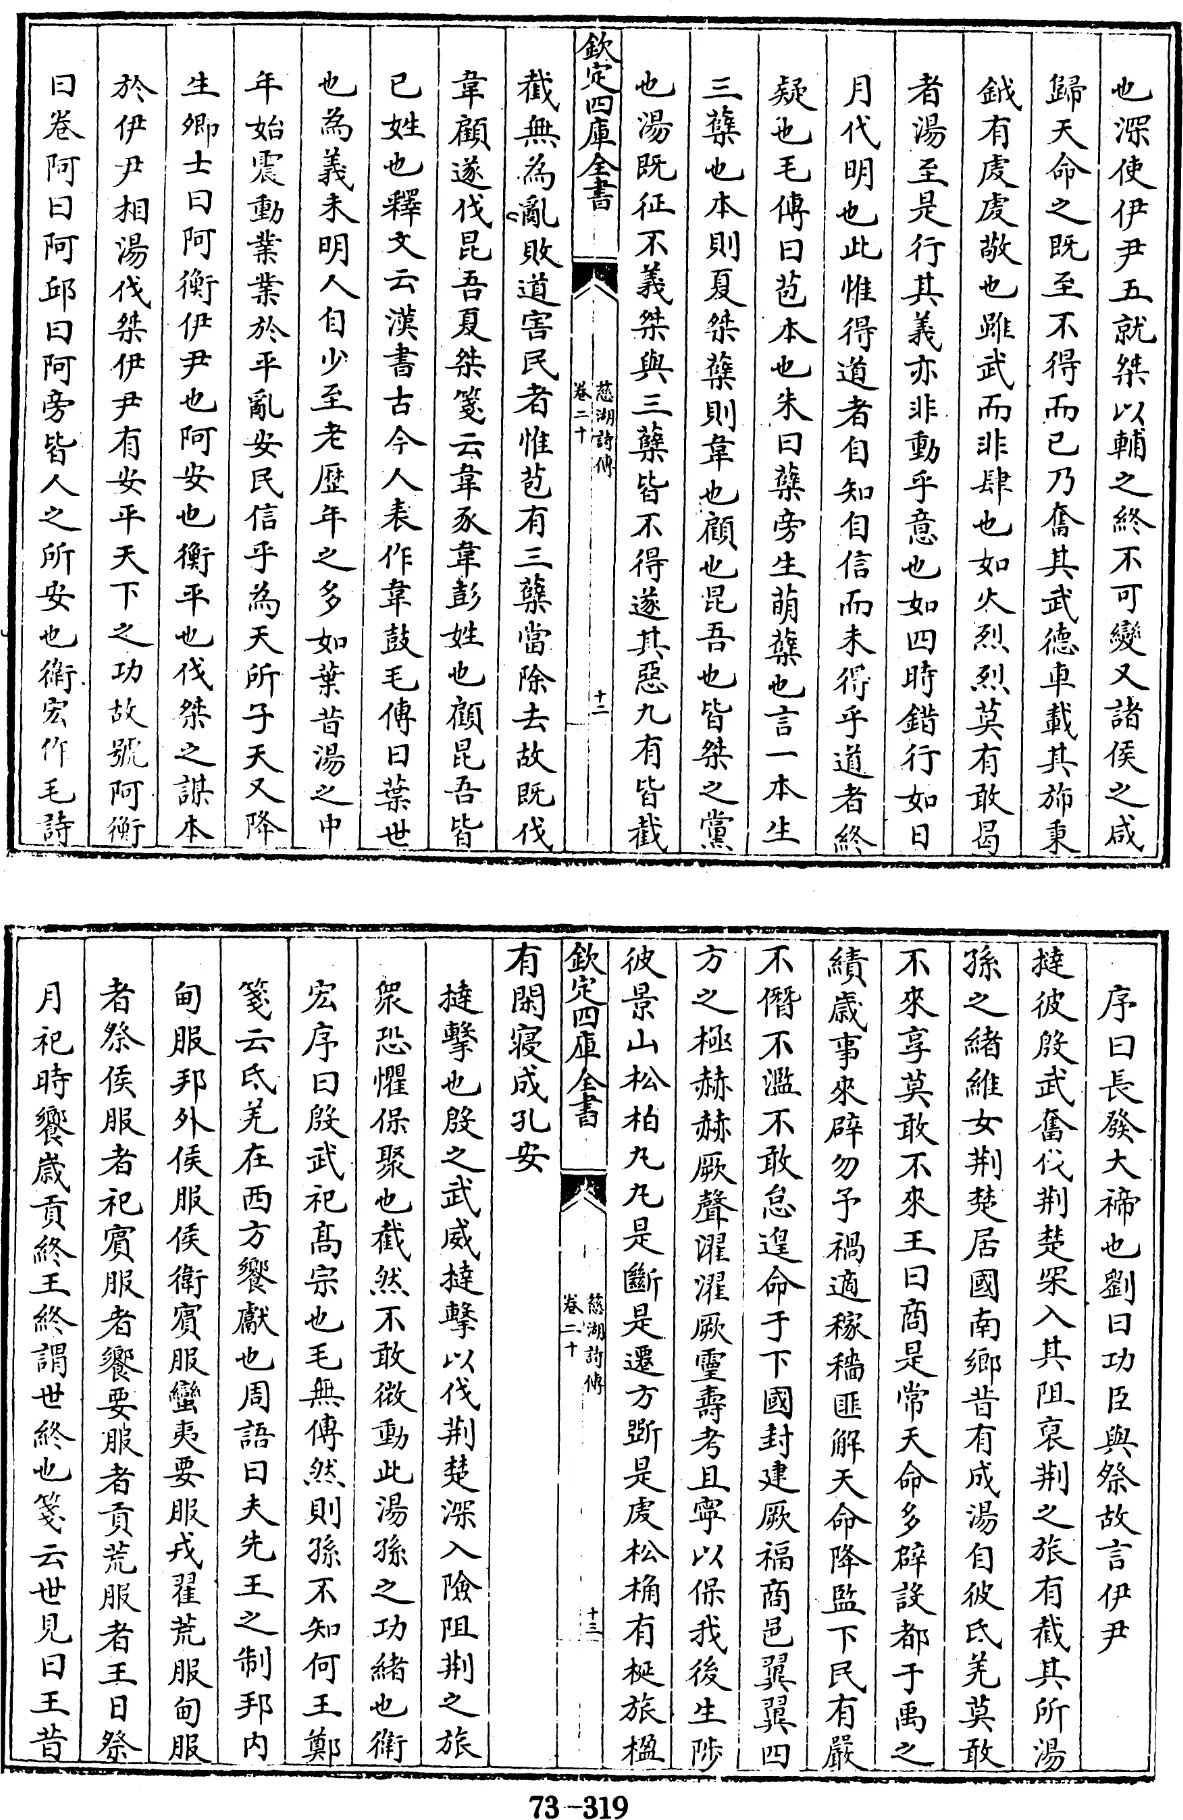 也深使伊尹五就桀以輔之終不可變又諸侯之咸
歸天命之既至不得而已乃奮其武德車載其斾秉
鉞有虔虔敬也雖武而非肆也如火烈烈莫有敢曷
者湯至是行其義亦非動乎意也如四時錯行如日
月代明也此惟得道者自知自信而未得乎道者終
疑也毛傳曰苞本也朱曰蘖旁生萌蘖也言一本生
三蘖也本則夏桀蘖則韋也顧也昆吾也皆桀之黨
也湯既征不義桀與三蘖皆不得遂其惡九有皆截
欽定四庫全書
慈湖詩傳
卷二十
十二
截無為亂敗道害民者惟苞有三蘖當除去故既伐
韋顧遂伐昆吾夏桀箋云韋豕韋彭姓也顧昆吾皆
已姓也釋文云漢書古今人表作韋鼓毛傳曰葉世
也為義未明人自少至老歷年之多如葉昔湯之中
年始震動業業於平亂安民信乎為天所子天又降
生卿士曰阿衡伊尹也阿安也衡平也伐桀之謀本
於伊尹相湯伐桀伊尹有安平天下之功故號阿衡
曰卷阿曰阿邱曰阿旁皆人之所安也衛宏作毛詩
序曰長發大禘也劉曰功臣與祭故言伊尹
撻彼殷武奮伐荆楚罙入其阻裒荆之旅有截其所湯
孫之緒維女荆楚居國南鄉昔有成湯自彼氐羌莫敢
不來享莫敢不來王曰商是常天命多辟設都于禹之
績歲事來辟勿予禍適稼穡匪解天命降監下民有嚴
不僭不濫不敢怠遑命于下國封建厥福商邑翼翼四
方之極赫赫厥聲濯濯厥靈壽考且寧以保我後生陟
彼景山松柏丸丸是斷是遷方斲是虔松桷有梴旅楹
欽定四庫全書
慈湖詩傳
卷二十
十三
有閑寢成孔安
撻擊也殷之武威撻擊以伐荆楚深入險阻荆之旅
衆恐懼保聚也截然不敢微動此湯孫之功緒也衛
宏序曰殷武祀高宗也毛無傳然則孫不知何王鄭
箋云氐羌在西方饗獻也周語曰夫先王之制邦内
甸服邦外侯服侯衛賓服蠻夷要服戎翟荒服甸服
者祭侯服者祀賓服者饗要服者貢荒服者王日祭
月祀時饗歲貢終王終謂世終也箋云世見曰王昔
73-319